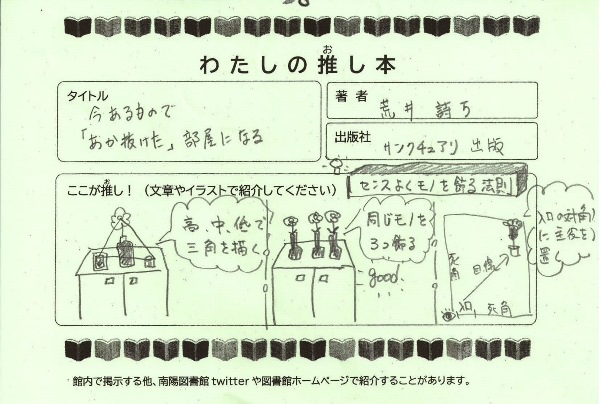 わたしの推し本
お
タイトル
今あるもので
「あか抜けた」部屋になる
著者
荒井詩万
出版社
サンクチュアリ出版
ここが推し！（文章やイラストで紹介してください）
お
センスよくモノを飾る法則
高、中、低で
三角を描く
同じモノを
3つ飾る
good
入口の対角
に主役を
置く
死角
目線
入口
死角
館内で掲示する他、南陽図書館twitterや図書館ホームページで紹介することがあります。